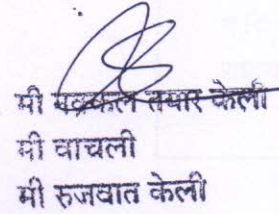 मी नक्कल तयार केली
मी वाचली
मी रुजवात केली